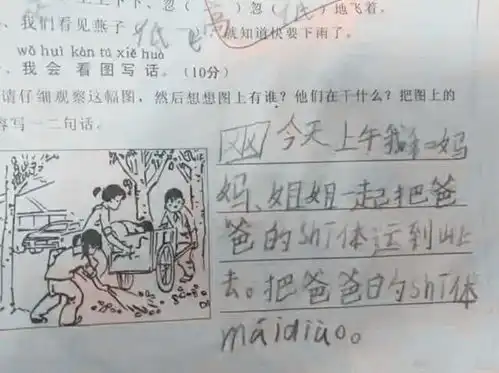 上上下下、忽（高）忽（低）地飞着。
、我们看见燕子低飞，就知道快要下雨了。
wǒ huì kàn tú xiě huà
、我会看图写话。（10分）
请仔细观察这幅图，然后想想图上有谁？他们在干什么？把图上的
容写一二句话。
今天上午我和妈
妈、姐姐一起把爸
爸的shī体运到山上
去。把爸爸的shī体
máidiào。